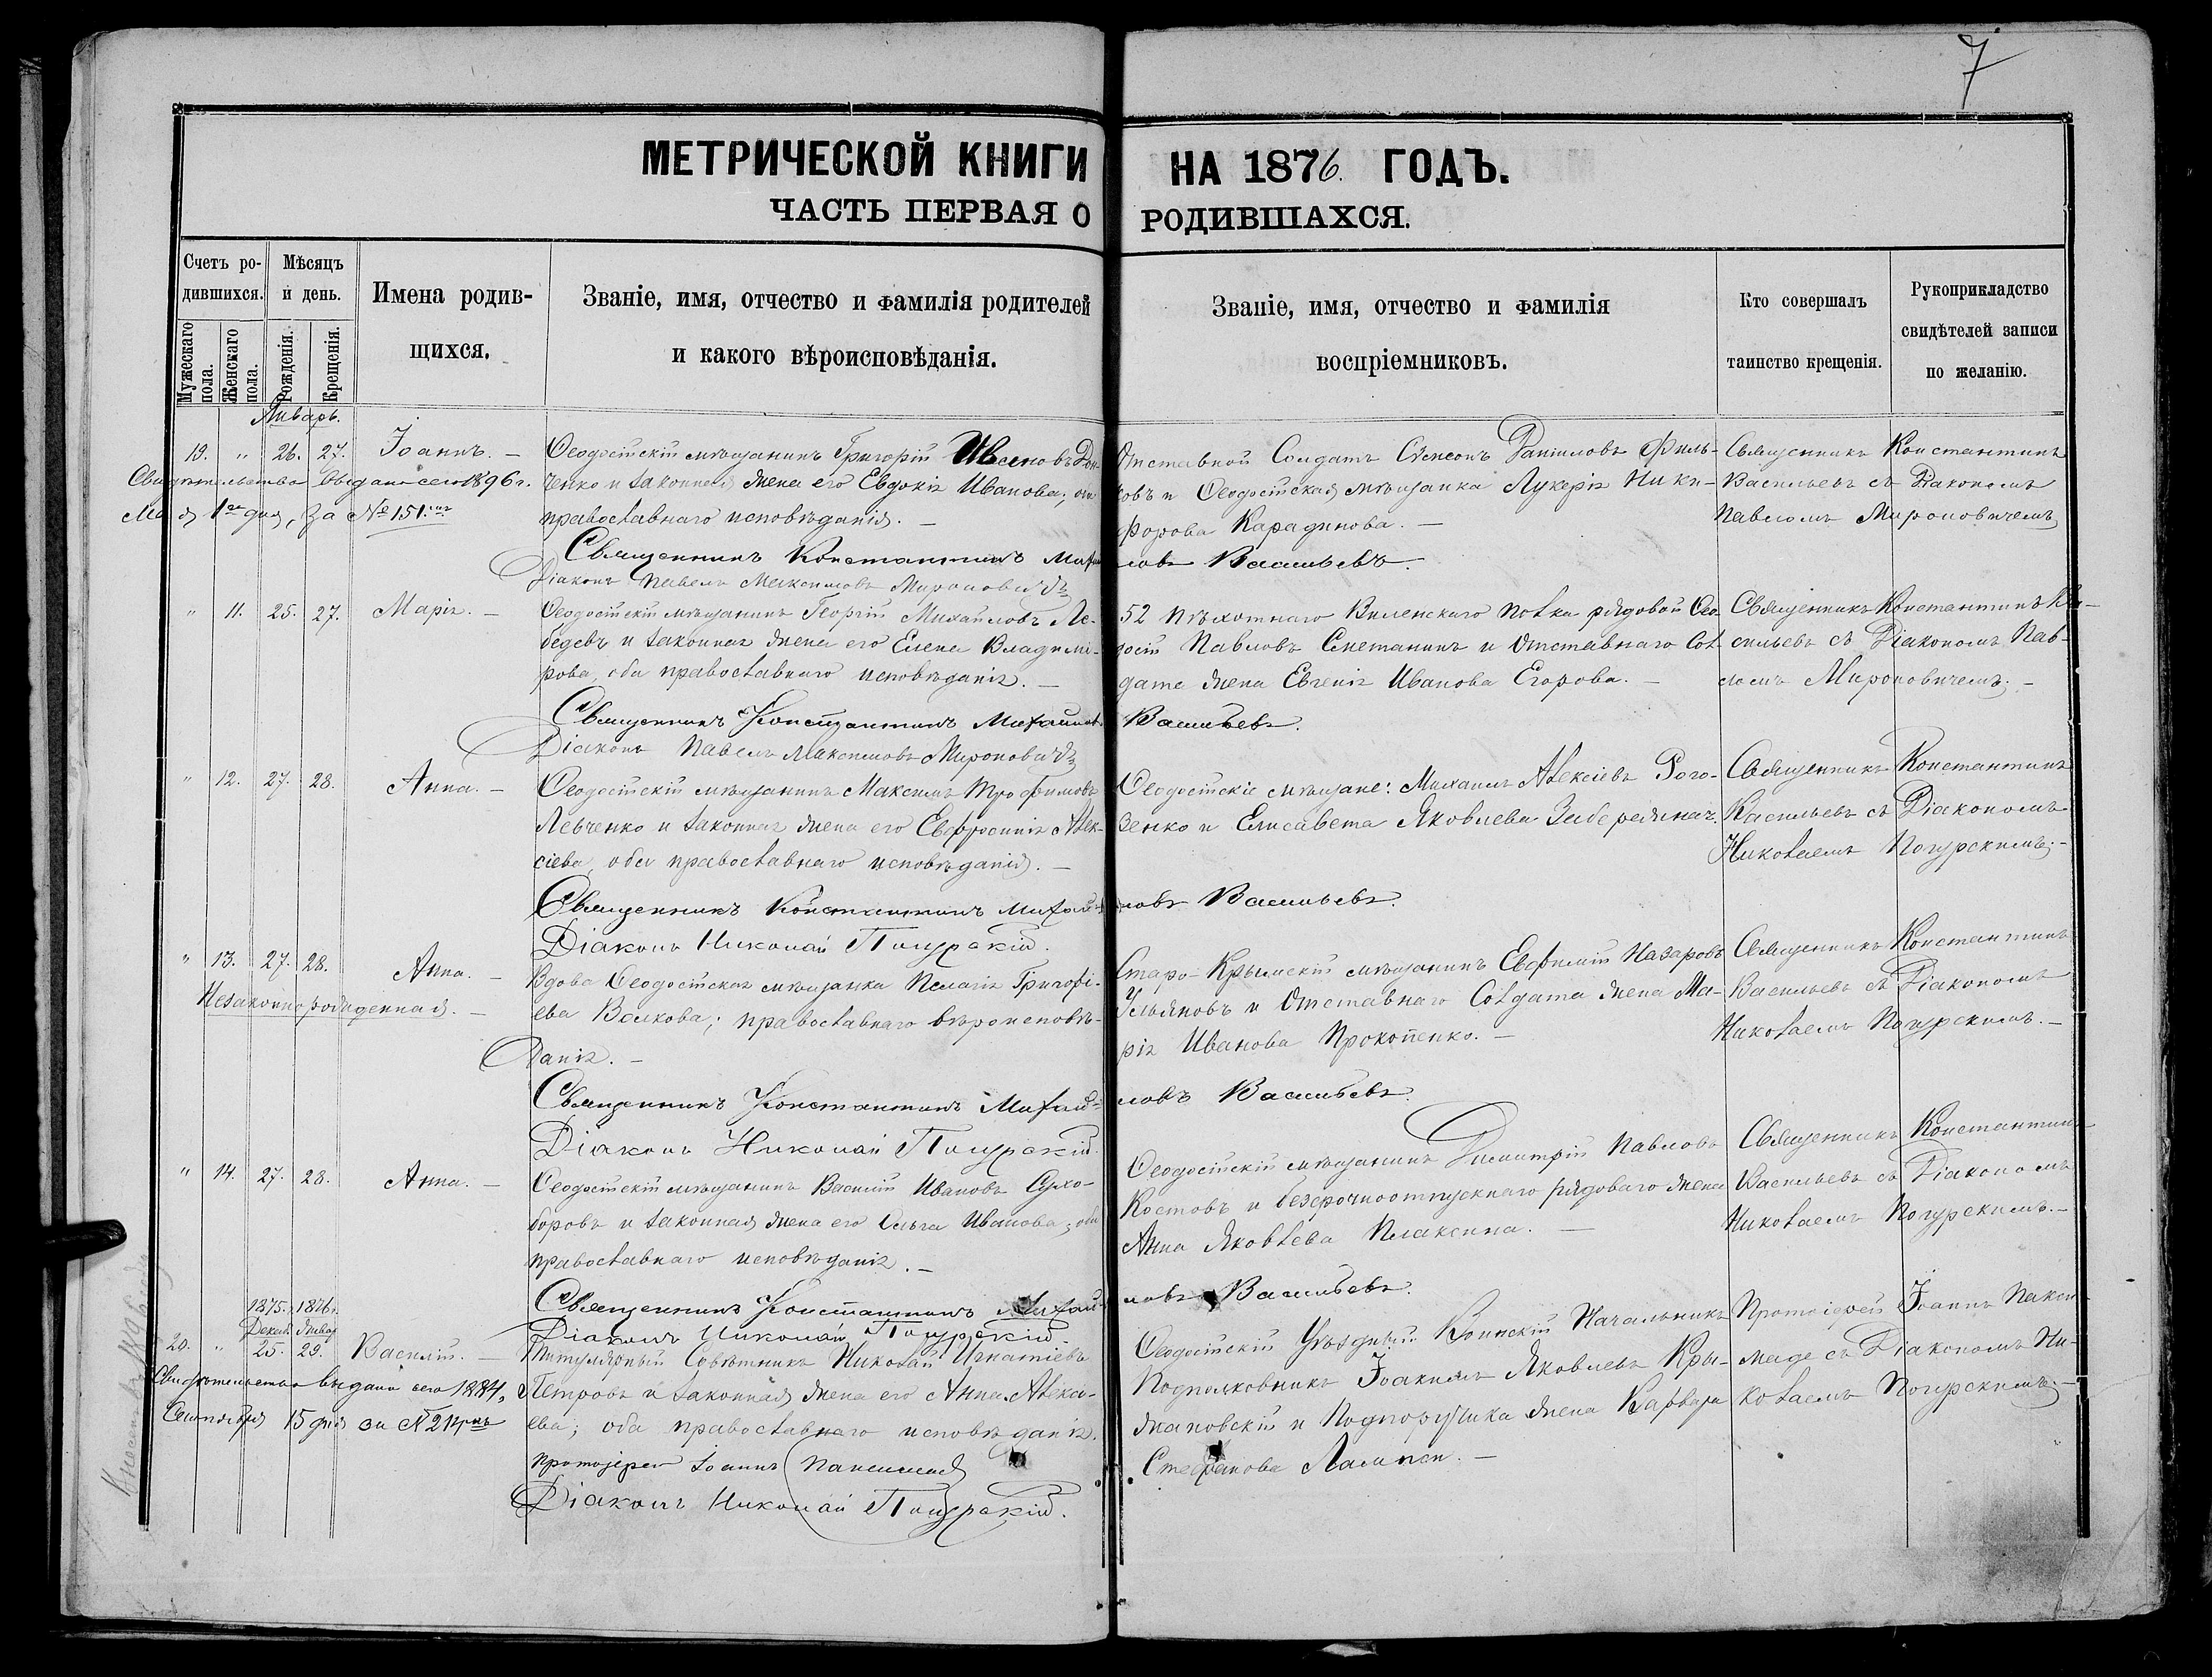 7
МЕТРИЧЕСКОЙ КНИГИ НА 1876. ГОДЪ.
ЧАСТЬ ПЕРВАЯ О РОДИВШАХСЯ.
Счетъ ро-
дившихся.
Мужескаго
пола.
Женскаго
пола.
Мѣсяцъ
и день.
Рожденія.
Крещенія.
Имена родив-
шихся.
Званіе, имя, отчество и фамилія родителей
и какого вѣроисповѣданія.
Званіе, имя, отчество и фамилія
воспріемниковъ.
Кто совершалъ
таинство крещенія.
Рукоприкладство
свидѣтелей записи
по желанію.
Январь.
19. " 26. 27. Іоаннъ. –
Свидѣтельство выдано сего 1896 г.
Мая 1го дня, за № 151.
Ѳеодосійскій мѣщанинъ Григорій Ивановъ Дон-
ченко и законная жена его Евдокія Иванова, оба
православнаго исповѣданія. –
Отставной Солдатъ Симеонъ Даніиловъ Филь-
ковъ и Ѳеодосійская мѣщанка Лукерія Ники-
форова Карадинова. –
Священникъ Константинъ
Васильевъ съ Діакономъ
Павломъ Мироновичемъ
Священникъ Константинъ Михайловъ Васильевъ.
Діаконъ Павелъ Максимовъ Мироновичъ
" 11. 25. 27. Марія. –
Ѳеодосійскій мѣщанинъ Георгій Михайловъ Ле-
бедевъ и законная жена его Елена Владимі-
рова, оба православнаго исповѣданія. –
52 пѣхотнаго Виленскаго полка рядовой Ѳео-
досій Павловъ Сметанинъ и Отставнаго Сол-
дата жена Евгенія Иванова Егорова. –
Священникъ Константинъ Ва-
сильевъ съ Діакономъ Пав-
ломъ Мироновичемъ. –
Священникъ Константинъ Михайловъ Васильевъ.
Діаконъ Павелъ Максимовъ Мироновичъ
" 12. 27. 28. Анна. –
Ѳеодосійскій мѣщанинъ Максимъ Трофимовъ
Левченко и законная жена его Евфросинія Алек-
сіева, оба православнаго исповѣданія. –
Ѳеодосійскіе мѣщане: Михаилъ Алексіевъ Рого-
зенко и Елисавета Яковлева
Священникъ Константинъ
Васильевъ съ Діакономъ
Николаемъ Погурскимъ. –
Священникъ Константинъ Михайловъ Васильевъ.
Діаконъ Николай Погурскій.
" 13. 27. 28. Анна. –
Незаконнорожденная. –
Вдова Ѳеодосійская мѣщанка Пелагія Григорі-
ева Волкова; православнаго вѣроисповѣ-
данія. –
Старо-Крымскій мѣщанинъ Евфимій Назаровъ
Ульяновъ и Отставнаго Солдата жена Ма-
рія Иванова Прокопенко. –
Священникъ Константинъ
Васильевъ съ Діакономъ
Николаемъ Погурскимъ. –
Священникъ Константинъ Михайловъ Васильевъ.
Діаконъ Николай Погурскій.
" 14. 27. 28. Анна. –
Ѳеодосійскій мѣщанинъ Василій Ивановъ Сухо-
боровъ и законная жена его Ольга Иванова; оба
православнаго исповѣданія. –
Ѳеодосійскій мѣщанинъ Димитрій Павловъ
Костовъ и безсрочноотпускнаго рядоваго жена
Анна Яковлева Плаксина. –
Священникъ Константинъ
Васильевъ съ Діакономъ
Николаемъ Погурскимъ. –
Священникъ Константинъ Михайловъ Васильевъ.
Діаконъ Николай Погурскій.
1875. 1876.
Декаб. Январ.
20. " 25. 29. Василій. –
Свидѣтельство выдано сего 1884,
Сентября 15 дня за №
Титулярный Совѣтникъ Николай Игнатіевъ
Петровъ и законная жена его Анна Алексі-
ева; оба православнаго исповѣданія.
Ѳеодосійскій Уѣздный Воинскій Начальникъ
Подполковникъ Іоакимъ Яковлевъ Кры-
жановскій и Подпоручика жена Варвара
Стефанова Лампси. –
Протоіерей Іоаннъ
съ Діакономъ Ни-
колаемъ Погурскимъ. –
Протоіерей Іоаннъ
Діаконъ Николай Погурскій.